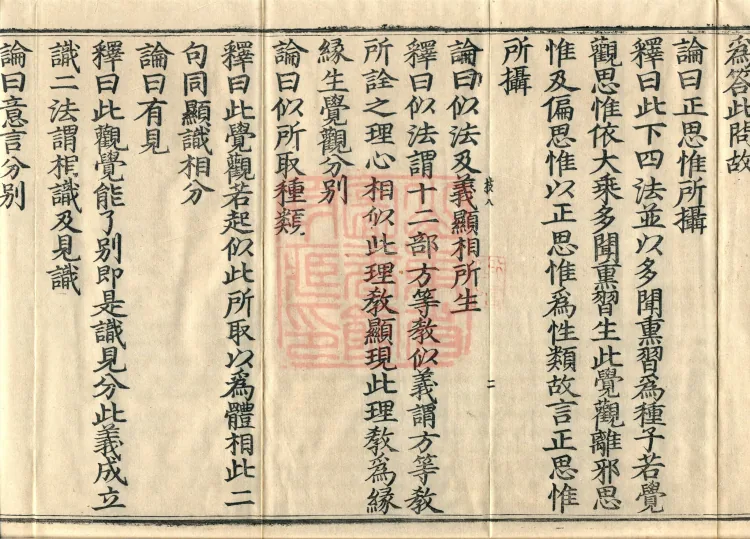 爲答此問故
論曰正思惟所攝
釋曰此下四法並以多聞熏習爲種子若覺
觀思惟依大乘多聞熏習生此覺觀離邪思
惟及偏思惟以正思惟爲性類故言正思惟
所攝
論曰似法及義顯相所生
釋曰似法謂十二部方等教似義謂方等教
所詮之理心相似此理教顯現此理教爲縁
縁生覺觀分別
論曰似所取種類
釋曰此覺觀若起似此所取以爲體相此二
句同顯識相分
論曰有見
釋曰此觀覺能了別即是識見分此義成立
識二法謂相識及見識
論曰意言分別